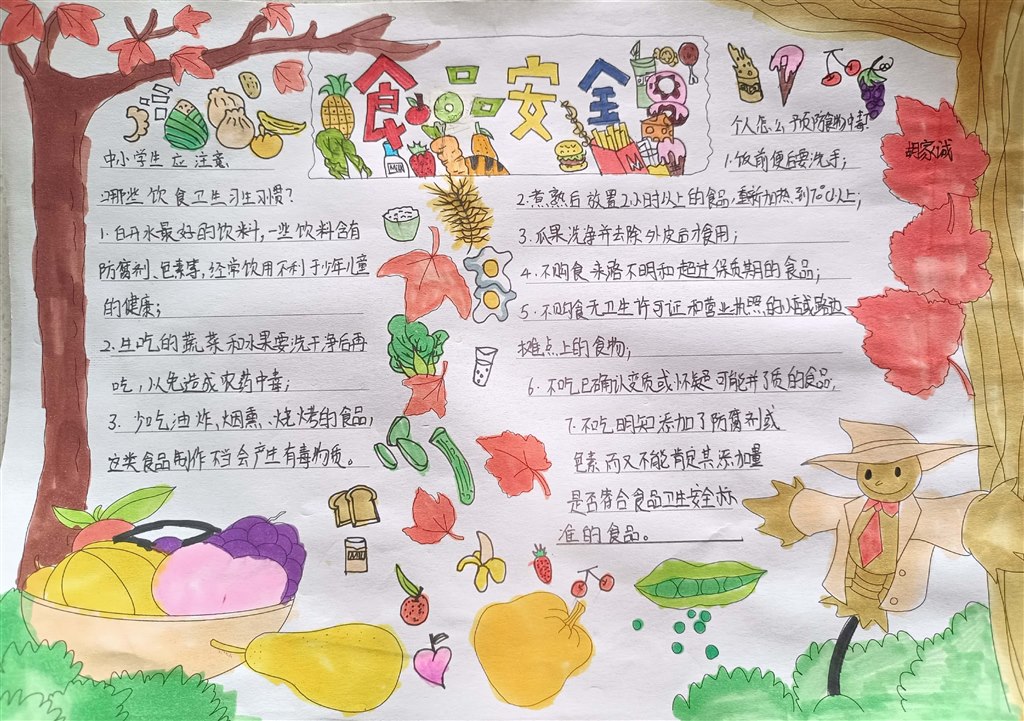 食品安全
中小学生应注意
哪些饮食卫生习生习惯?
1.白开水最好的饮料,一些饮料含有
防腐剂、色素等,经常饮用不利于少年儿童
的健康;
2.生吃的蔬菜和水果要洗干净后再
吃,以免造成农药中毒;
3.少吃油炸、烟熏、烧烤的食品,
这类食品制作不当会产生有毒物质。
个人怎么预防食物中毒?
1.饭前便后要洗手;
2.煮熟后放置2小时以上的食品,重新加热到70℃以上;
3.瓜果洗净并去除外皮后才食用;
4.不购食来路不明和超过保质期的食品;
5.不购食无卫生许可证和营业执照的小店或路边
摊点上的食物;
6.不吃已确认变质或怀疑可能并了质的食品,
7.不吃明知添加了防腐剂或
色素而又不能肯定其添加量
是否符合食品卫生安全标
准的食品。
胡家诚